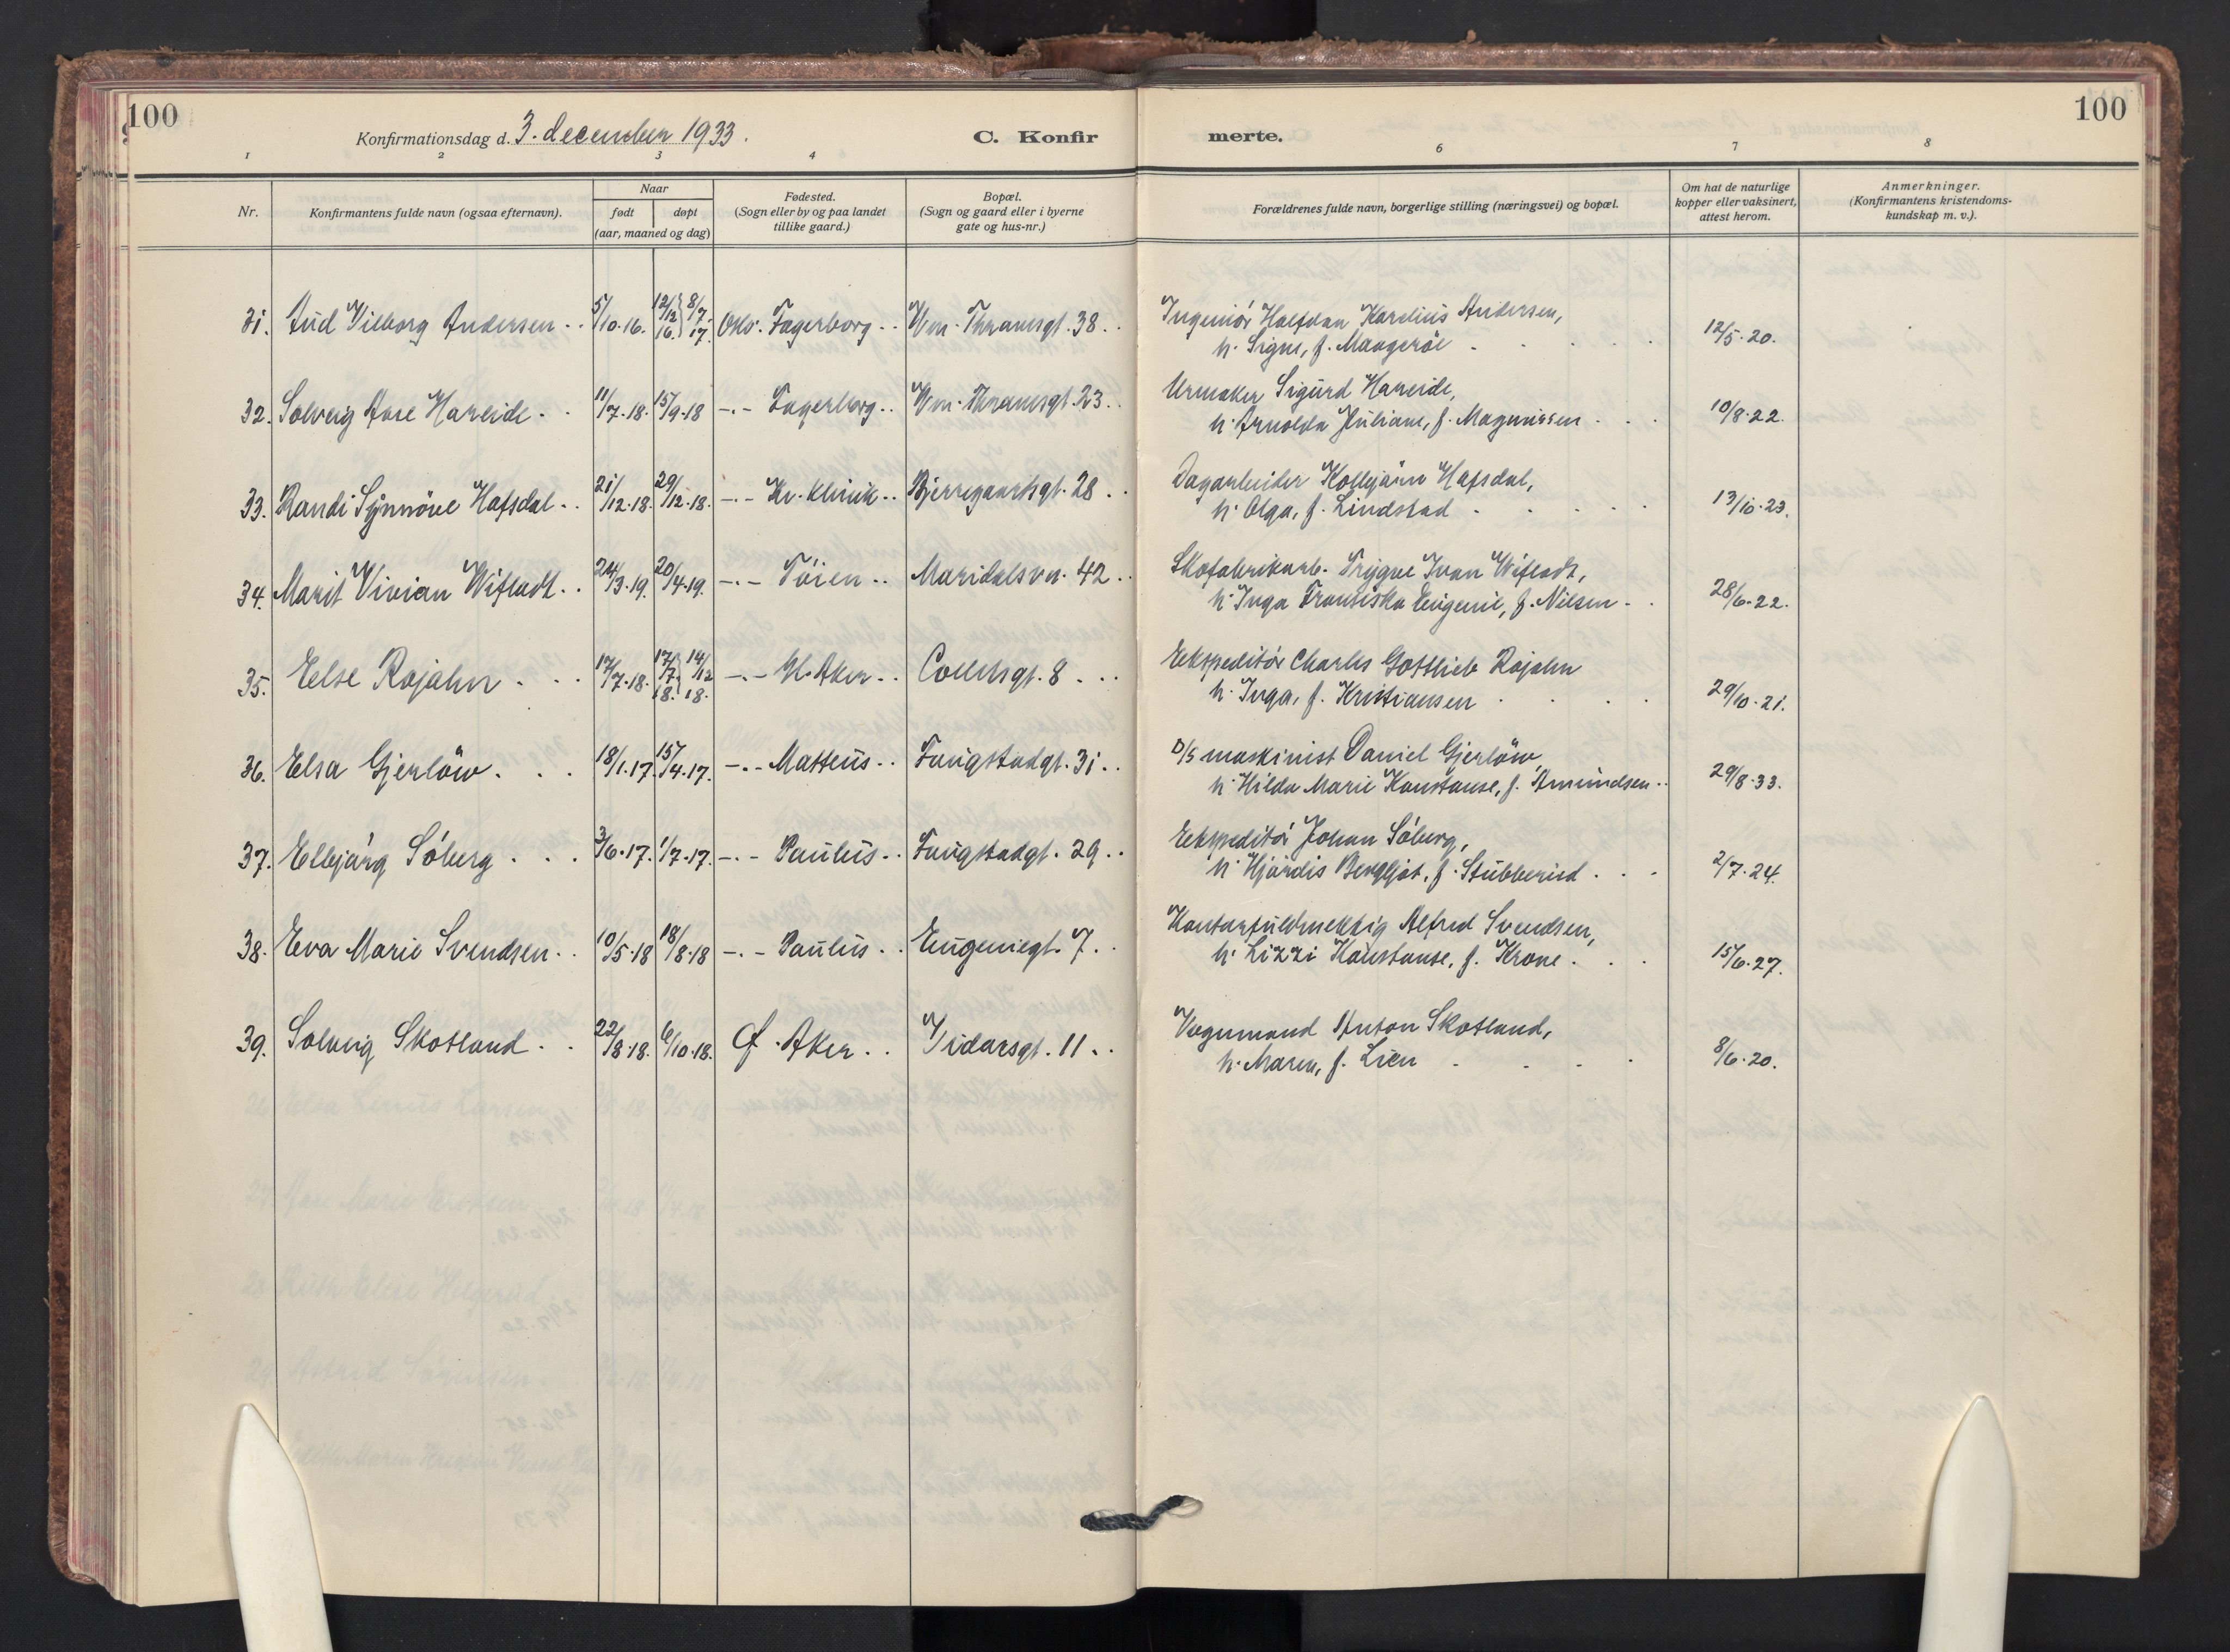 100
100
Konfirmationsdag d. 3. december 1933.
C. Konfir
merte.
1 2 3 4 6 7 8
Nr.
Konfirmantens fulde navn (ogsaa efternavn).
Naar
født døpt
(aar, maaned og dag)
Fødested.
(Sogn eller by og paa landet
tillike gaard.)
Bopæl.
(Sogn og gaard eller i byerne
gate og hus-nr.)
Forældrenes fulde navn, borgerlige stilling (næringsvei) og bopæl.
Om hat de naturlige
kopper eller vaksinert,
attest herom.
Anmerkninger.
(Konfirmantens kristendoms-
kundskap m. v.).
31. Aud Vilborg Andersen . . 5/10.16. 12/12 16. } 8/7. 17. Oslo. Fagerborg . . W.m. Thranesgt. 38 . .
Ingeniör Halfdan Karelius Andersen,
h. Signe, f. Maugeröe . . . . .
12/5.20.
32. Solveig Aase Hareide . . 11/7.18. 15/9.18 -.- Fagerborg . . W.m. Thranesgt. 23 . .
Urmaker Sigurd Hareide,
h. Arnolda Juliane, f. Magnussen . . .
10/8.22.
33. Randi Synnöve Hafsdal . . 21/12.18. 29/12.18. -.- Kv. klinik . . Bjerregaardsgt. 28 . .
Dagarbeider Kolbjörn Hafsdal,
h. Olga, f. Lindstad . . . . .
13/10.23.
34. Marit Vivian Wifladt . . 24/3.19. 20/4.19. -.- Töien . . Maridalsvn. 42 . .
Skofabrikarb. Trygve Ivan Wifladt,
h. Inga Franciska Eugenie, f. Nilsen . .
28/6.22.
35. Else Rojahn . . . 17/7.18. 17/7 18. } 14/12 18. -.- Gl. Aker . . Collettsgt. 8 . . .
Ekspeditör Charles Gottlieb Rojahn
h. Inga, f. Kristiansen . . . .
29/10.21.
36. Elsa Gjerlöw . . . 18/1.17. 15/4.17. -.- Matteus . . Fougstadgt. 31 . .
D/S maskinist Daniel Gjerlöw,
h. Hilda Marie Konstanse, f. Amundsen . .
29/8.33.
37. Elbjörg Söberg . . . 3/6.17. 1/7.17. -.- Paulus . . Fougstadgt. 29 . .
Ekspeditör Johan Söberg,
h. Hjördis Bergljot, f. Stubberud . . .
2/7.24.
38. Eva Marie Svendsen . . 10/5.18 18/8.18 -.- Paulus . . Eugeniegt. 7 . .
Kontorfuldmektig Alfred Svendsen,
h. Lizzi Konstanse, f. Krone . . .
15/6.27.
39. Solveig Skotland . . 22/8.18. 6/10.18. Ö. Aker . . Vidarsgt. 11 . .
Vognmand Anton Skotland,
h. Maren, f. Lien . . . .
8/6.20.